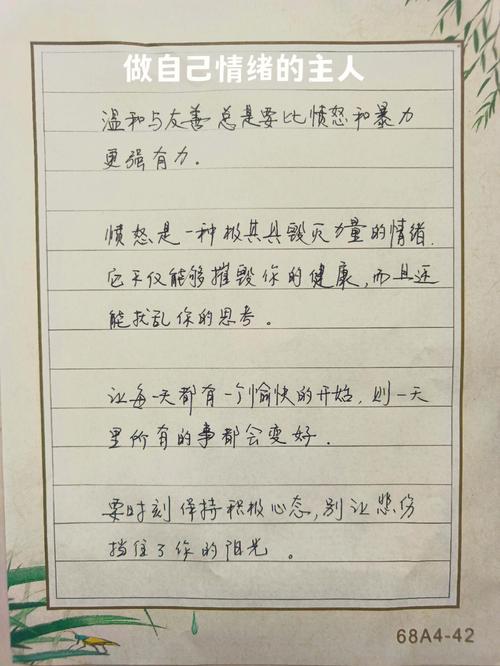 做自己情绪的主人
温和与友善总是要比愤怒和暴力
更强有力.
愤怒是一种极其具毁灭力量的情绪.
它不仅能够摧毁你的健康,而且还
能扰乱你的思考。
让每一天都有一个愉快的开始,则一天
里所有的事都会变好.
要时刻保持积极心态,别让悲伤
挡住了你的阳光。
68A4-42